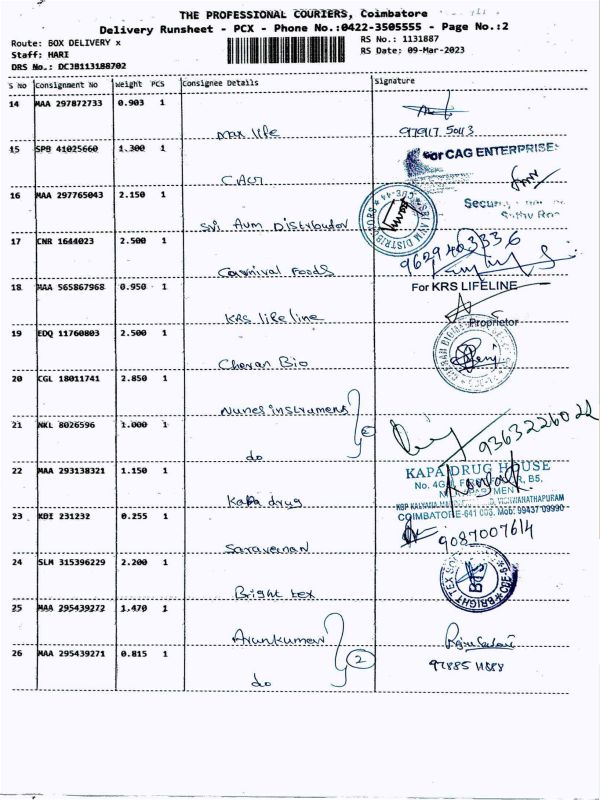 THE PROFESSIONAL COURIERS, Coimbatore
Delivery Runsheet - PCX - Phone No.:0422-3505555 - Page No.:2
Route: BOX DELIVERY x
RS No.: 1131887
Staff: HARI
RS Date: 09-Mar-2023
DRS No.: DCJB113188702
S No Consignment No Weight PCS Consignee Details Signature
14 MAA 297872733 0.903 1
max life 97917 5043
15 SPB 41025660 1.300 1 For CAG ENTERPRISES
CAG
16 MAA 297765043 2.150 1
SRI AUM DISTRIBUTORS * CBE-44 *
Security
Sri Aum Distributor
17 CNR 1644023 2.500 1 9629403336
Carnival Foods
18 MAA 565867968 0.950 1 For KRS LIFELINE
KRS life line
Proprietor
19 EDQ 11760803 2.500 1
Cheran Bio
20 CGL 18011741 2.850 1
Nunes instrumens
21 NKL 8026596 1.000 1 9363226022
do 2
22 MAA 293138321 1.150 1 KAPA DRUG HOUSE
B5,
VISHWANATHAPURAM
COIMBATORE-641 003. Mob: 99437 09990
Kapa drug
23 KBI 231232 0.255 1 9087007614
Saravanan
24 SLM 315396229 2.200 1
BRIGHT TEX
Bright tex
25 MAA 295439272 1.470 1
Arunkumar
26 MAA 295439271 0.815 1 2
97885 11888
do